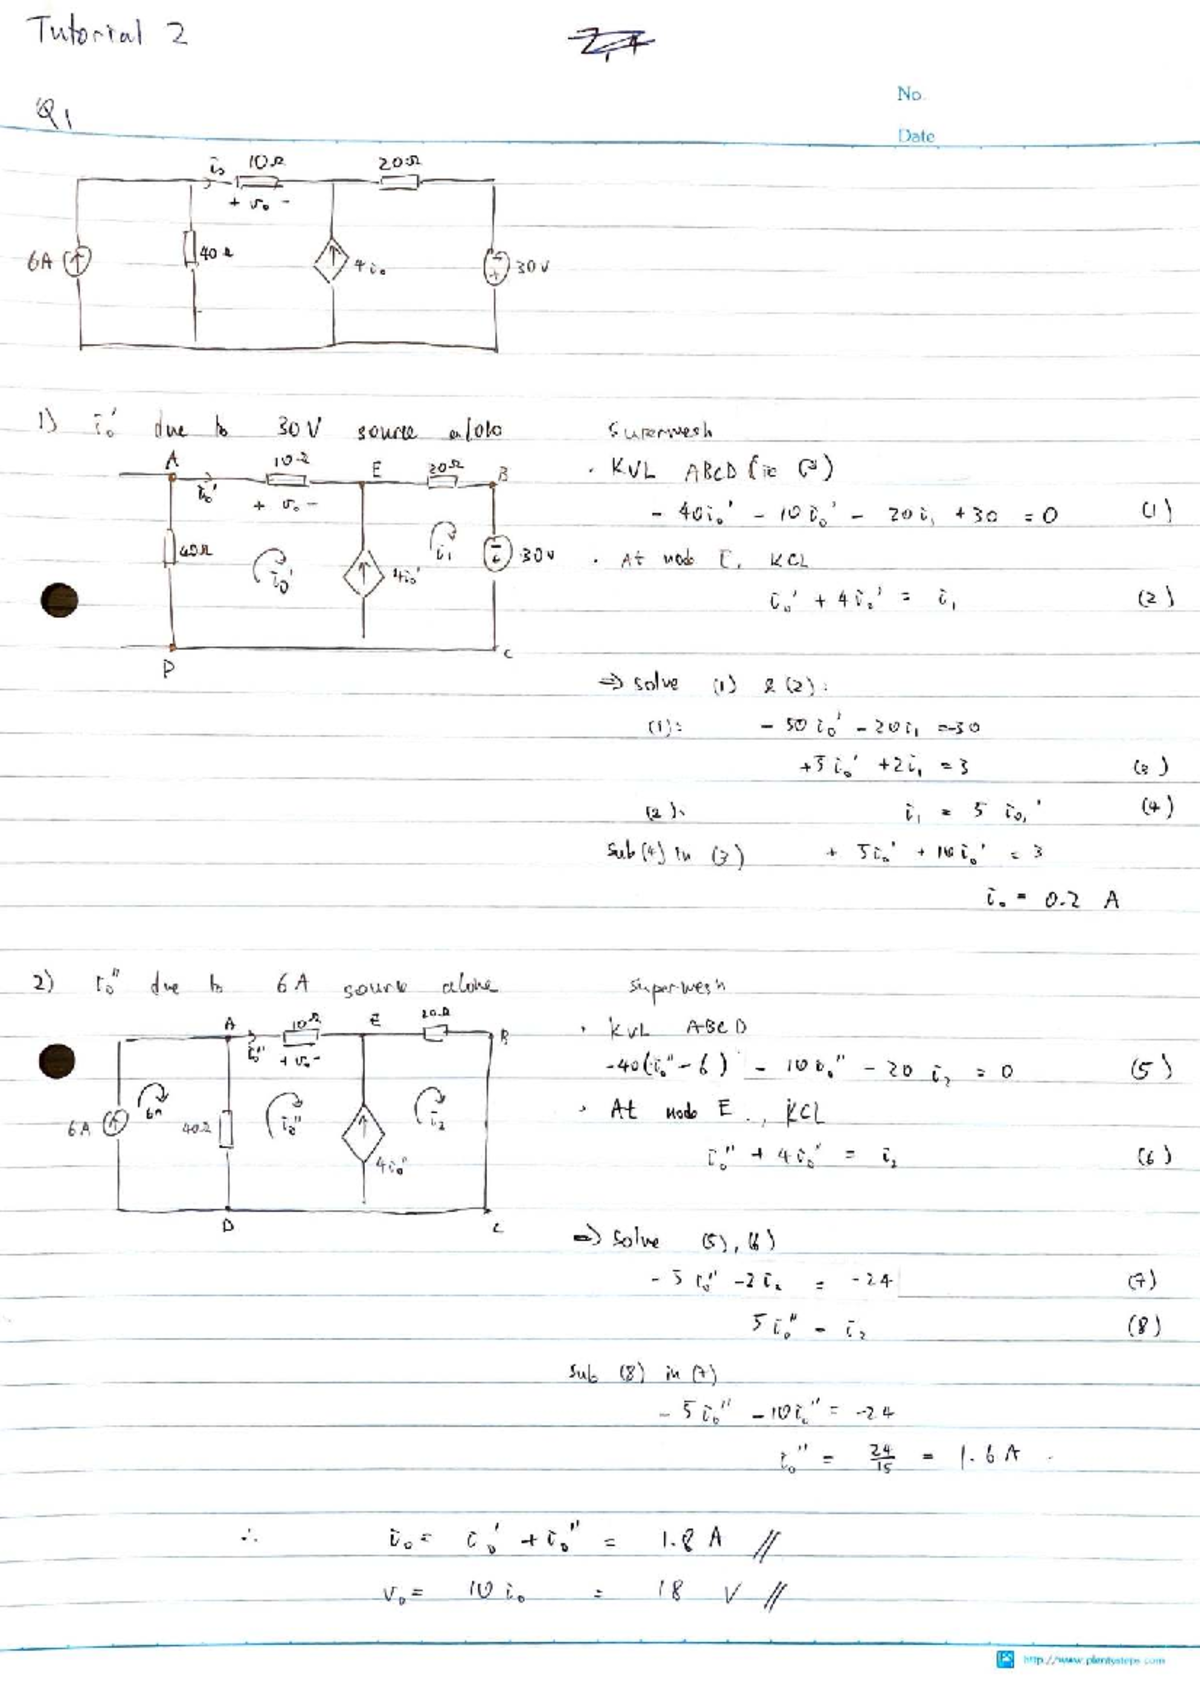 Tutorial 2
No.
Q1
Date
i₀ 10Ω 20Ω
+ v₀ -
6A 40Ω 4i₀ 30V
1) i₀' due to 30V source alone
A 10Ω E 20Ω B
i₀' + v₀ -
40Ω i₀' 4i₀' i₁ 30V
D C
Supermesh
· KVL ABCD
- 40i₀' - 10i₀' - 20i₁ + 30 = 0 (1)
· At node E, KCL
i₀' + 4i₀' = i₁ (2)
⇒ solve (1) & (2):
(1): - 50i₀' - 20i₁ = -30
+5i₀' + 2i₁ = 3 (3)
(2): i₁ = 5 i₀' (4)
Sub (4) in (3) + 5i₀' + 10i₀' = 3
i₀ = 0.2 A
2) i₀" due to 6A source alone
A 10Ω E 20Ω B
i₀" + v₀ -
6A 6A 40Ω i₀" 4i₀" i₂
D C
Supermesh
· KVL ABCD
-40(i₀" - 6) - 10i₀" - 20 i₂ = 0 (5)
· At node E, KCL
i₀" + 4i₀" = i₂ (6)
⇒ Solve (5), (6)
- 5 i₀" - 2i₂ = -24 (7)
5i₀" = i₂ (8)
Sub (8) in (7)
- 5i₀" - 10i₀" = -24
i₀" = 24/15 = 1.6 A
∴ i₀ = i₀' + i₀" = 1.8 A //
v₀ = 10 i₀ = 18 V //
http://www.plentysteps.com